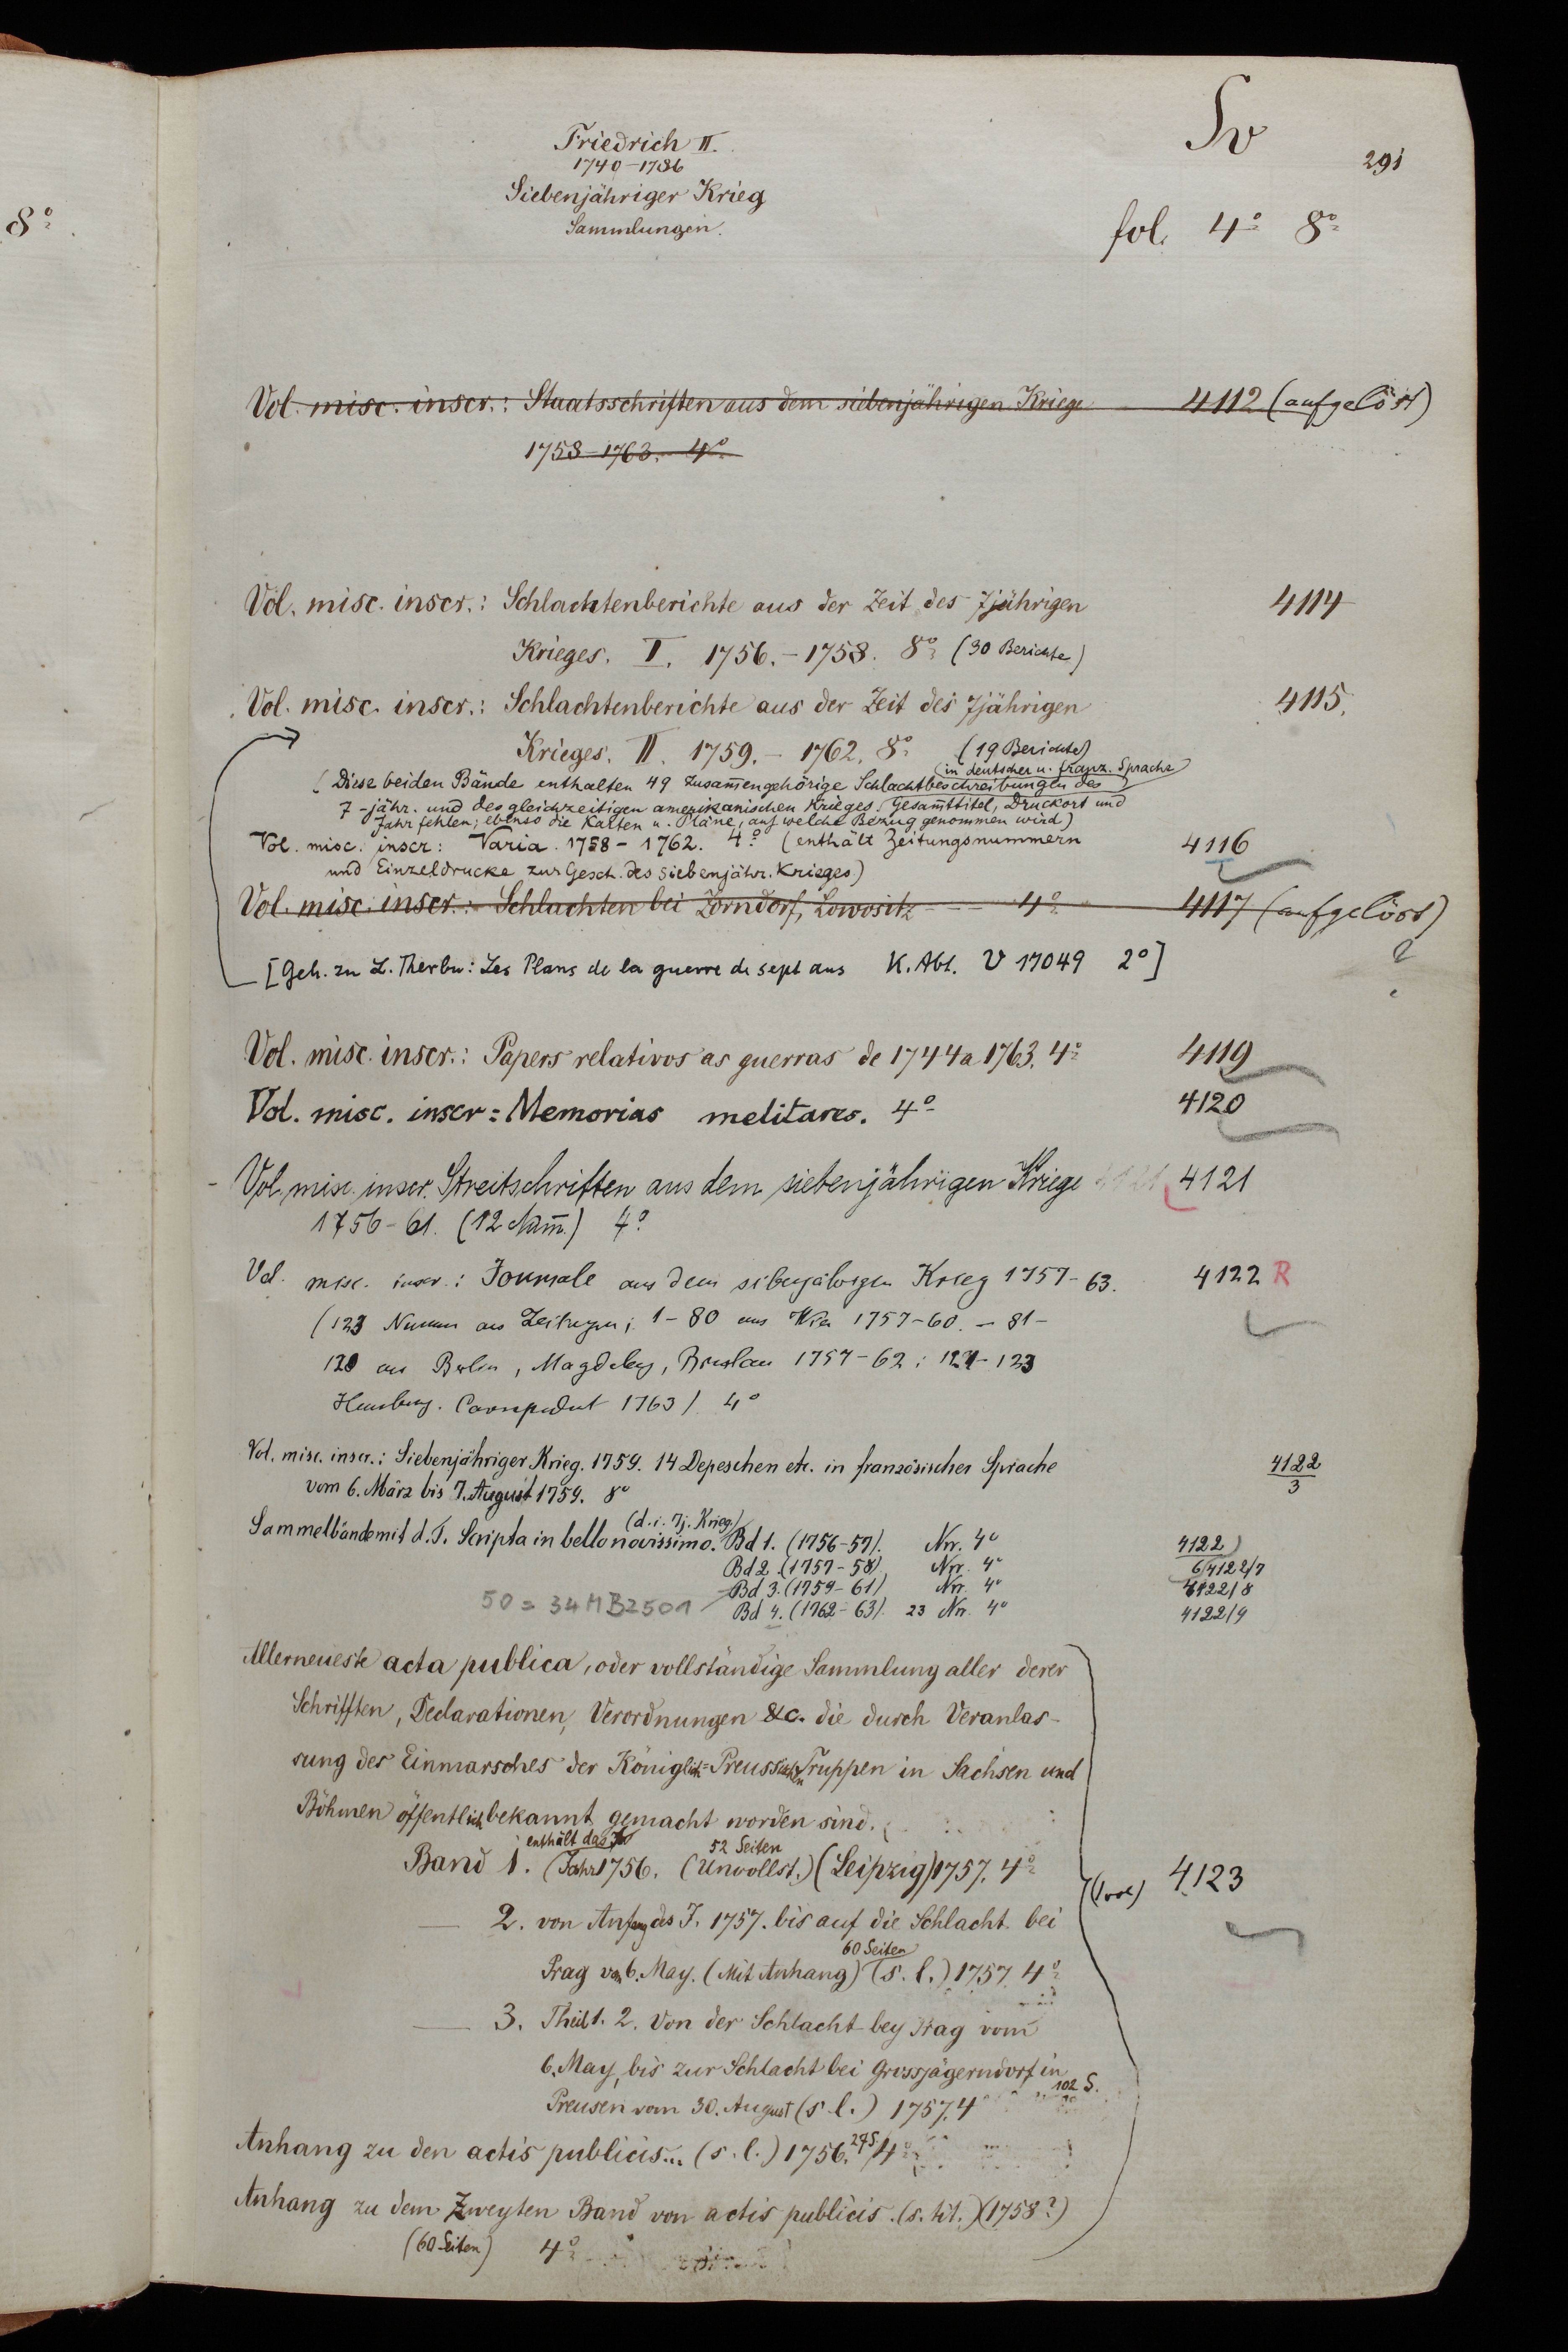 8°
Friedrich II.
1740-1786
Siebenjähriger Krieg
Sammlungen.
Sv
291
fol. 4° 8°
Vol. misc. inscr.: Staatsschriften aus dem siebenjährigen Kriege 4112 (aufgelöst)
1758-1763. 4°
Vol. misc. inscr.: Schlachtenberichte aus der Zeit des 7jährigen 4114
Krieges. I. 1756.-1758. 8° (30 Berichte)
Vol. misc. inscr.: Schlachtenberichte aus der Zeit des 7jährigen 4115.
Krieges. II. 1759.-1762. 8° (19 Berichte)
(in deutscher u. franz. Sprache
(Diese beiden Bände enthalten 49 zusam̅engehörige Schlachtbeschreibungen des
7-jähr. und des gleichzeitigen amerikanischen Krieges. Gesam̅ttitel, Druckort und
Jahr fehlen; ebenso die Karten u. Pläne, auf welche Bezug genommen wird)
Vol. misc. inscr: Varia. 1758-1762. 4° (enthält Zeitungsnummern 4116
und Einzeldrucke zur Gesch. des siebenjähr. Krieges)
Vol. misc. inscr.: Schlachten bei Zorndorf, Lowositz 4° 4117 (aufgelöst)
?
[Geh. zu L. Therbu: Les Plans de la guerre de sept ans K. Abt. U 17049 2°]
Vol. misc. inscr.: Papers relativos as guerras de 1744 a 1763. 4° 4119
Vol. misc. inscr: Memorias melitares. 4° 4120
Vol. misc. inscr. Streitschriften aus dem siebenjährigen Kriege 4121 4121
1756-61. (12 Num̅.) 4°
Vol. misc. inscr.: Journale aus dem siebenjährigen Krieg 1757-63. 4122 R
(123 Nummern aus Zeitungen; 1-80 aus Wien 1757-60. - 81-
120 aus Berlin, Magdeburg, Breslau 1757-62; 121-123
Hamburg. Correspondent 1763) 4°
Vol. misc. inscr.: Siebenjähriger Krieg. 1759. 14 Depeschen etc. in französischer Sprache 4122/3
vom 6. März bis 7. August 1759. 8°
(d.i. 7j. Krieg)
Sammelbände mit d. T. Scripta in bello novissimo. Bd 1. (1756-57). Nrr. 4° 4122/6
Bd 2. (1757-58) Nrr. 4° 4122/7
Bd 3. (1759-61) Nrr. 4° 4122/8
50 = 34 MB 2501 Bd 4. (1762-63). 23 Nrr. 4° 4122/9
Allerneueste acta publica, oder vollständige Sammlung aller derer
Schrifften, Declarationen, Verordnungen &c. die durch Veranlas-
sung des Einmarsches der Königlich=Preussischen Truppen in Sachsen und
Böhmen öffentlich bekannt gemacht worden sind.
enthält das 52 Seiten
Band 1. (Jahr 1756. (Unvollst.) (Leipzig) 1757. 4°
(1 vol) 4123
2. von Anfang des J. 1757. bis auf die Schlacht bei
60 Seiten
Prag vom 6. May. (Mit Anhang) (s. l.) 1757. 4°
3. Theil 1. 2. Von der Schlacht bey Prag vom
6. May, bis zur Schlacht bei Grossjägerndorf in
102 S.
Preusen vom 30. August (s. l.) 1757. 4°
Anhang zu den actis publicis... (s. l.) 1756. 4°
Anhang zu dem Zweyten Band von actis publicis. (s. tit.) (1758?)
(60 Seiten) 4°